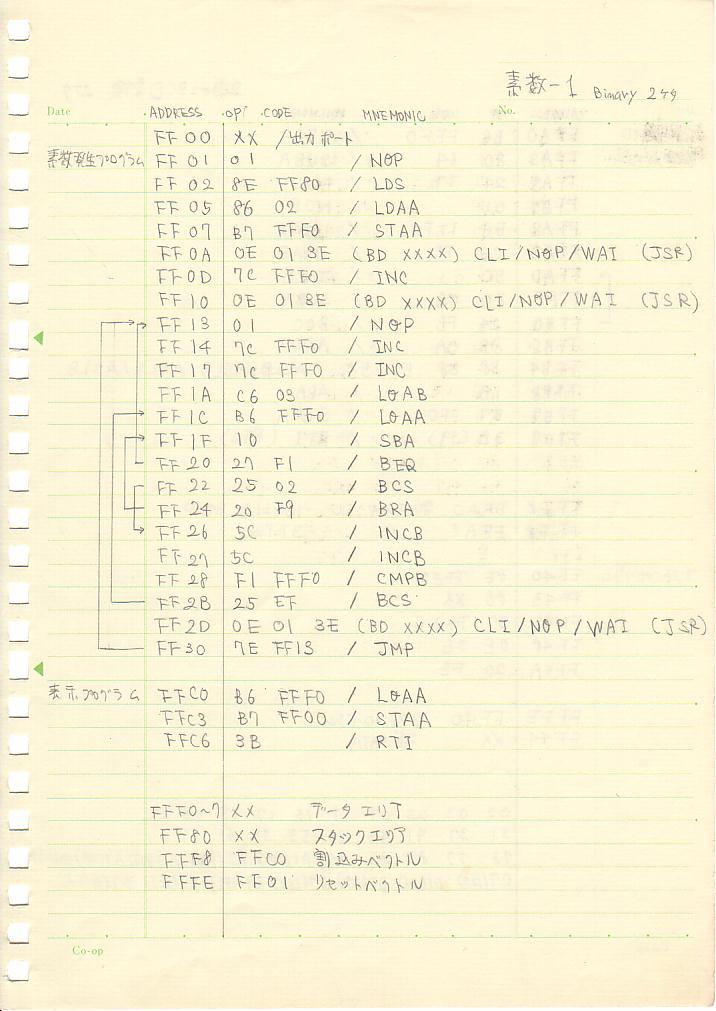 素数-1 Binary 249
Date ADDRESS OP CODE MNEMONIC No.
FF 00 XX /出力ポート
素数発生プログラム FF 01 01 / NOP
FF 02 8E FF80 / LDS
FF 05 86 02 / LDAA
FF 07 B7 FFF0 / STAA
FF 0A 0E 01 3E (BD XXXX) CLI/NOP/WAI (JSR)
FF 0D 7C FFF0 / INC
FF 10 0E 01 3E (BD XXXX) CLI/NOP/WAI (JSR)
FF 13 01 / NOP
FF 14 7C FFF0 / INC
FF 17 7C FFF0 / INC
FF 1A C6 03 / LDAB
FF 1C B6 FFF0 / LDAA
FF 1F 10 / SBA
FF 20 27 F1 / BEQ
FF 22 25 02 / BCS
FF 24 20 F9 / BRA
FF 26 5C / INCB
FF 27 5C / INCB
FF 28 F1 FFF0 / CMPB
FF 2B 25 EF / BCS
FF 2D 0E 01 3E (BD XXXX) CLI/NOP/WAI (JSR)
FF 30 7E FF13 / JMP
表示プログラム FFC0 B6 FFF0 / LDAA
FFC3 B7 FF00 / STAA
FFC6 3B / RTI
FFF0~7 XX データエリア
FF80 XX スタックエリア
FFF8 FFC0 割込みベクトル
FFFE FF01 リセットベクトル
Co-op